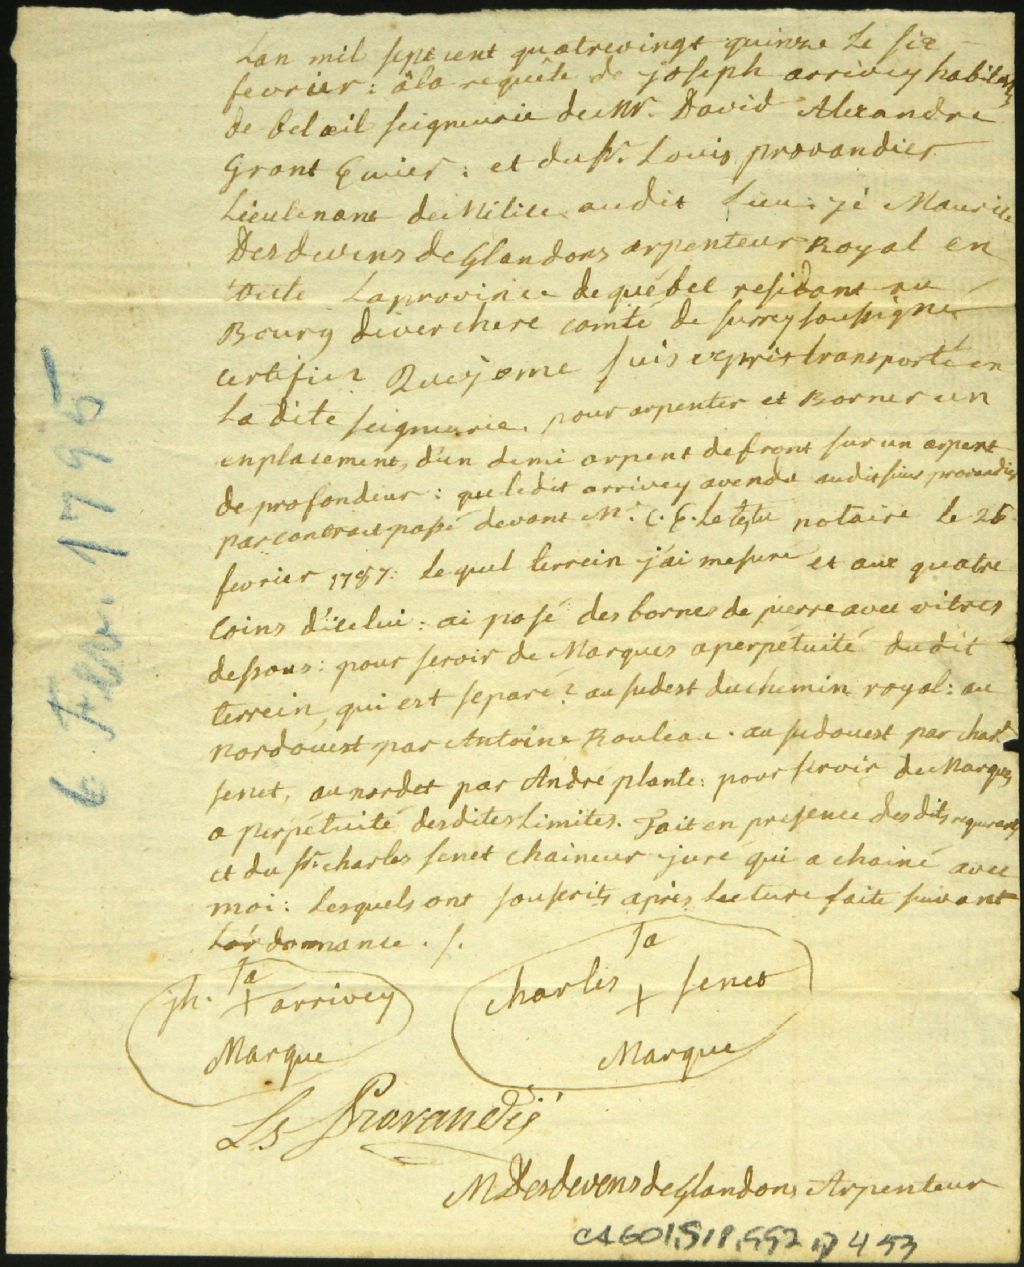 Lan mil sept cent quatrevingt quinze Le six
fevrier : àla requête de joseph arrivey habitant
de belœil seigneurie de Mr. David Alexandre
Grant Ecuier : et du Sr. Louis provandier
Lieutenant de Milice audit Lieu : jé Maurice
Desdevens de Glandons arpenteur Royal en
toute Laprovince de québec residant au
Bourg de verchere comté de surrey soussigné
certifier Que jeme suis exprès transporté en
La dite seigneurie pour arpenter et Borner un
enplacement d'un demi arpent defront sur un arpent
de profondeur : que ledit arrivey avendu audit sieur provandier
par contract passé devant Mr. C. E. Letestu notaire le 26
fevrier 1787 : lequel terrein j'ai mesuré et aux quatre
Coins d'icelui : ai posé des bornes de pierre avec vitres
dessous : pour servir de Marques aperpétuité du dit
terrein, qui est separé ? au sudest duchemin royal : au
nordouest par Antoine Rouleau . au sudouest par charl
senet, au nordet par André plante : pour servir de Marques
a perpétuité desdites Limites. Fait en presence des dits requerants
et du Sr. charles senet chaineur juré qui a chainé avec
moi : Lesquels ont souscrits après Lecture faite suivant
Lórdonnance . /.
jh. Sa + arrivey
Marque
charles Sa + senet
Marque
Ls Provandié
M Desdevens de Glandons Arpenteur
6 Fev. 1795
CA601,S18,SS2,D453